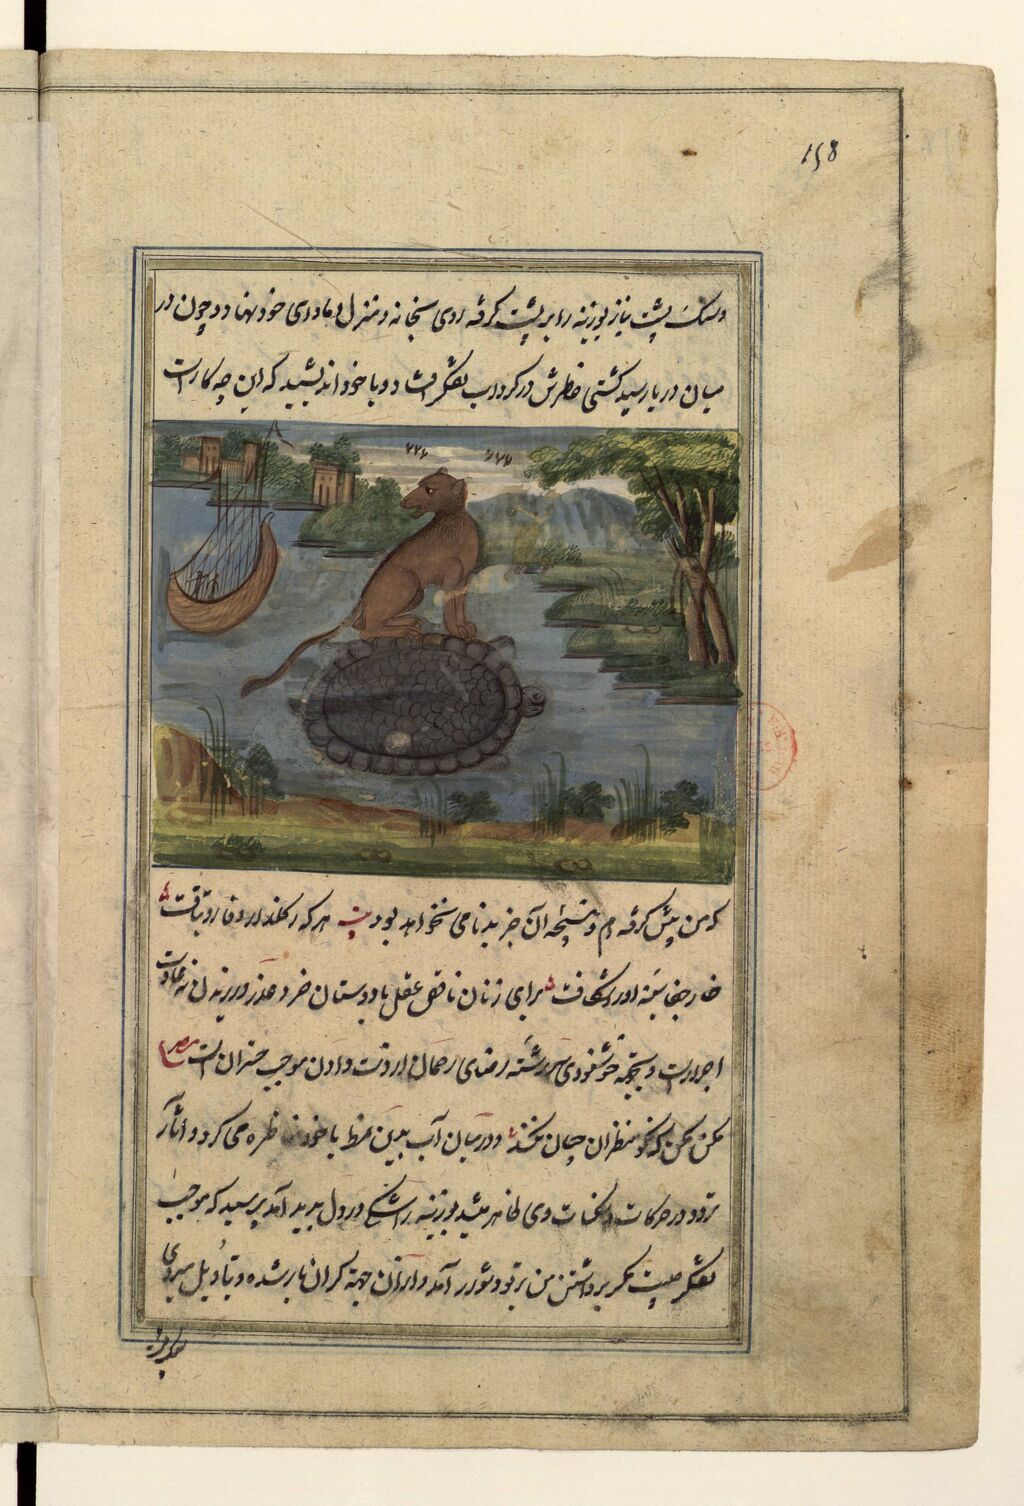 158
و سنگ پشت نیاز بوزینه را بر پشت گرفته روی بخانه و منزل و ماوای خود نهاد و چون در
میان دریا رسید کشتی خاطرش در گرداب تفکر افتاد و با خود اندیشید که این چه کارست
که من پیش گرفته ام و نتیجه آن جز بدنامی نخواهد بود هر که گل غدر و فا روتافت
خار جفا سینه او را شکافت برای زنان ناقص عقل با دوستان خرد غدر ورزیدن نه عادت
احرارست و بجهة خوشنودی سررشته رضای رحمان از دست دادن موجب خسران است مصرع
مکن مکن که نکو منظران چنان نکنند و در میان آب بدین نمط با خود مناظره می کرد و آثار
تردد در حرکات و سکنات وی ظاهر میشد بوزینه را شکی در دل پدید آمد پرسید که موجب
تفکر چیست مگر برداشتن من بر تو دشوار آمد و از آن جهة گران بار شده و بتأویل میروی